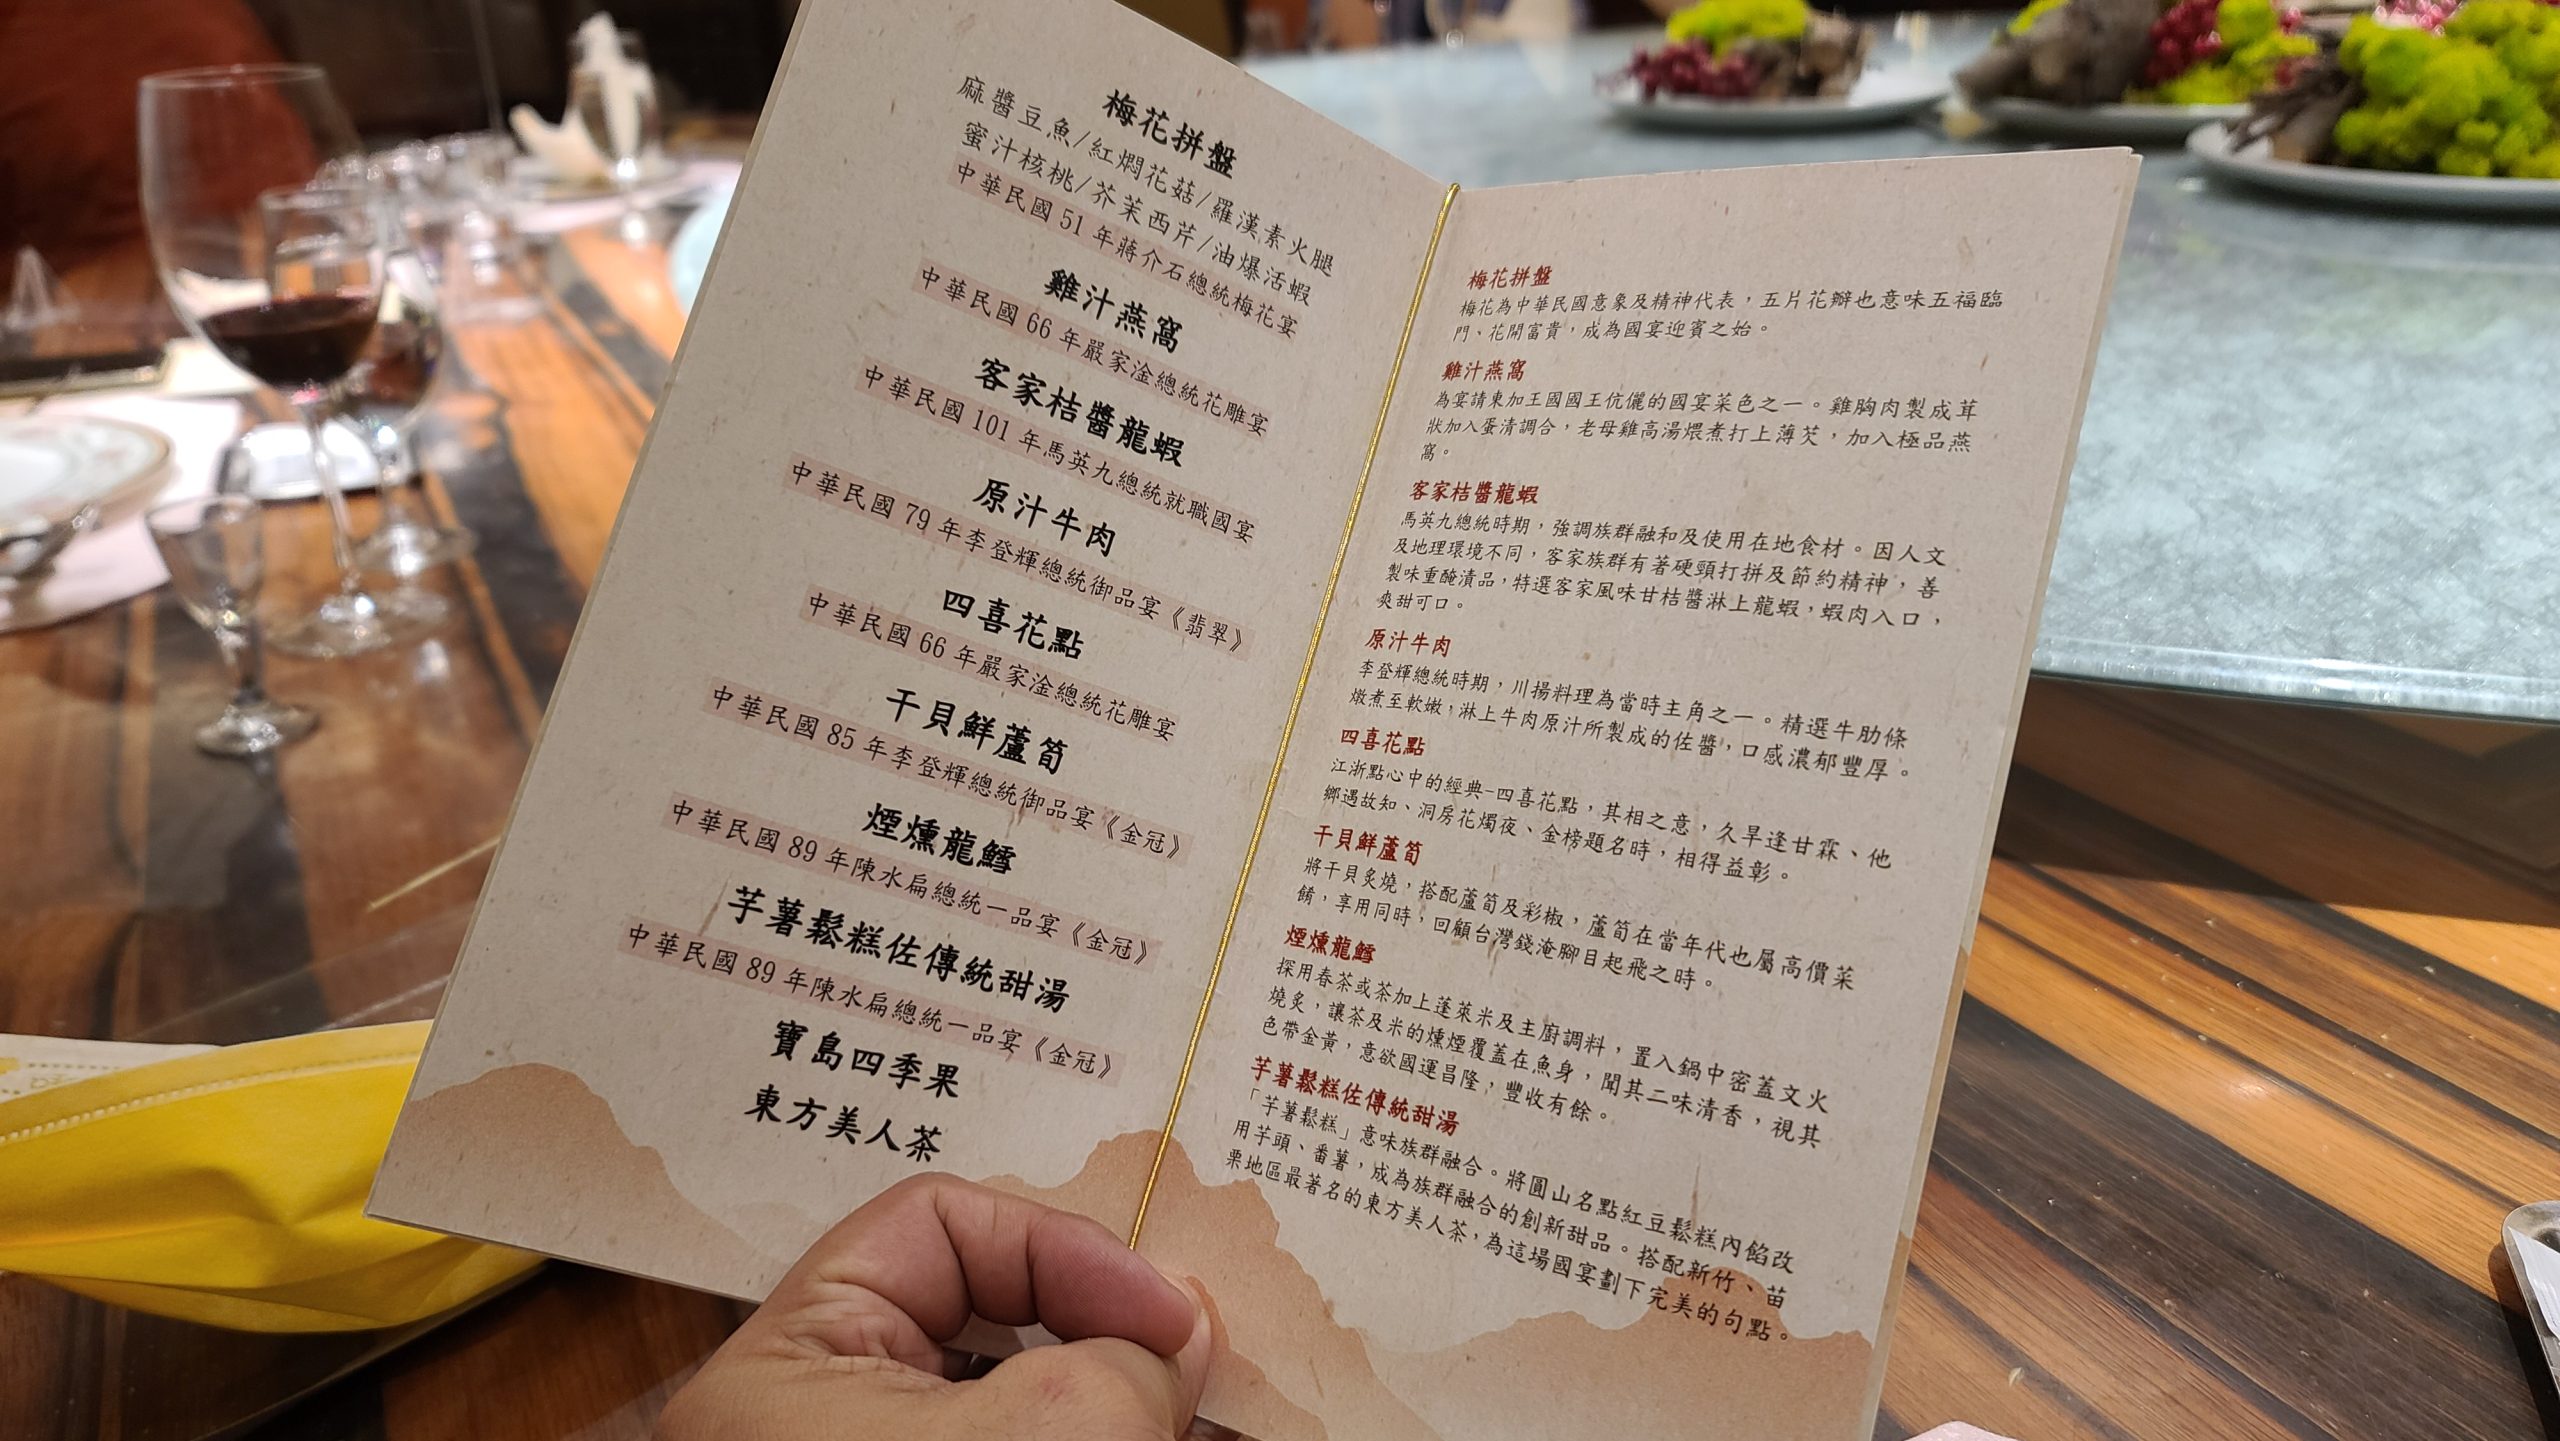 梅花拼盤
麻醬豆魚/紅燜花菇/羅漢素火腿
蜜汁核桃/芥茉西芹/油爆活蝦
中華民國 51 年蔣介石總統梅花宴
雞汁燕窩
中華民國 66 年嚴家淦總統花雕宴
客家桔醬龍蝦
中華民國 101 年馬英九總統就職國宴
原汁牛肉
中華民國 79 年李登輝總統御品宴《翡翠》
四喜花點
中華民國 66 年嚴家淦總統花雕宴
干貝鮮蘆筍
中華民國 85 年李登輝總統御品宴《金冠》
煙燻龍鱈
中華民國 89 年陳水扁總統一品宴《金冠》
芋薯鬆糕佐傳統甜湯
中華民國 89 年陳水扁總統一品宴《金冠》
寶島四季果
東方美人茶
梅花拼盤
梅花為中華民國意象及精神代表，五片花瓣也意味五福臨
門、花開富貴，成為國宴迎賓之始。
雞汁燕窩
為宴請東加王國國王伉儷的國宴菜色之一。雞胸肉製成茸
狀加入蛋清調合，老母雞高湯煨煮打上薄芡，加入極品燕
窩。
客家桔醬龍蝦
馬英九總統時期，強調族群融和及使用在地食材。因人文
及地理環境不同，客家族群有著硬頸打拼及節約精神，善
製味重醃漬品，特選客家風味甘桔醬淋上龍蝦，蝦肉入口，
爽甜可口。
原汁牛肉
李登輝總統時期，川揚料理為當時主角之一。精選牛肋條
燉煮至軟嫩，淋上牛肉原汁所製成的佐醬，口感濃郁豐厚。
四喜花點
江浙點心中的經典-四喜花點，其相之意，久旱逢甘霖、他
鄉遇故知、洞房花燭夜、金榜題名時，相得益彰。
干貝鮮蘆筍
將干貝炙燒，搭配蘆筍及彩椒，蘆筍在當年代也屬高價菜
餚，享用同時，回顧台灣錢淹腳目起飛之時。
煙燻龍鱈
採用春茶或茶加上蓬萊米及主廚調料，置入鍋中密蓋文火
燒炙，讓茶及米的燻煙覆蓋在魚身，聞其二味清香，視其
色帶金黃，意欲國運昌隆，豐收有餘。
芋薯鬆糕佐傳統甜湯
「芋薯鬆糕」意味族群融合。將圓山名點紅豆鬆糕內餡改
用芋頭、番薯，成為族群融合的創新甜品。搭配新竹、苗
栗地區最著名的東方美人茶，為這場國宴劃下完美的句點。